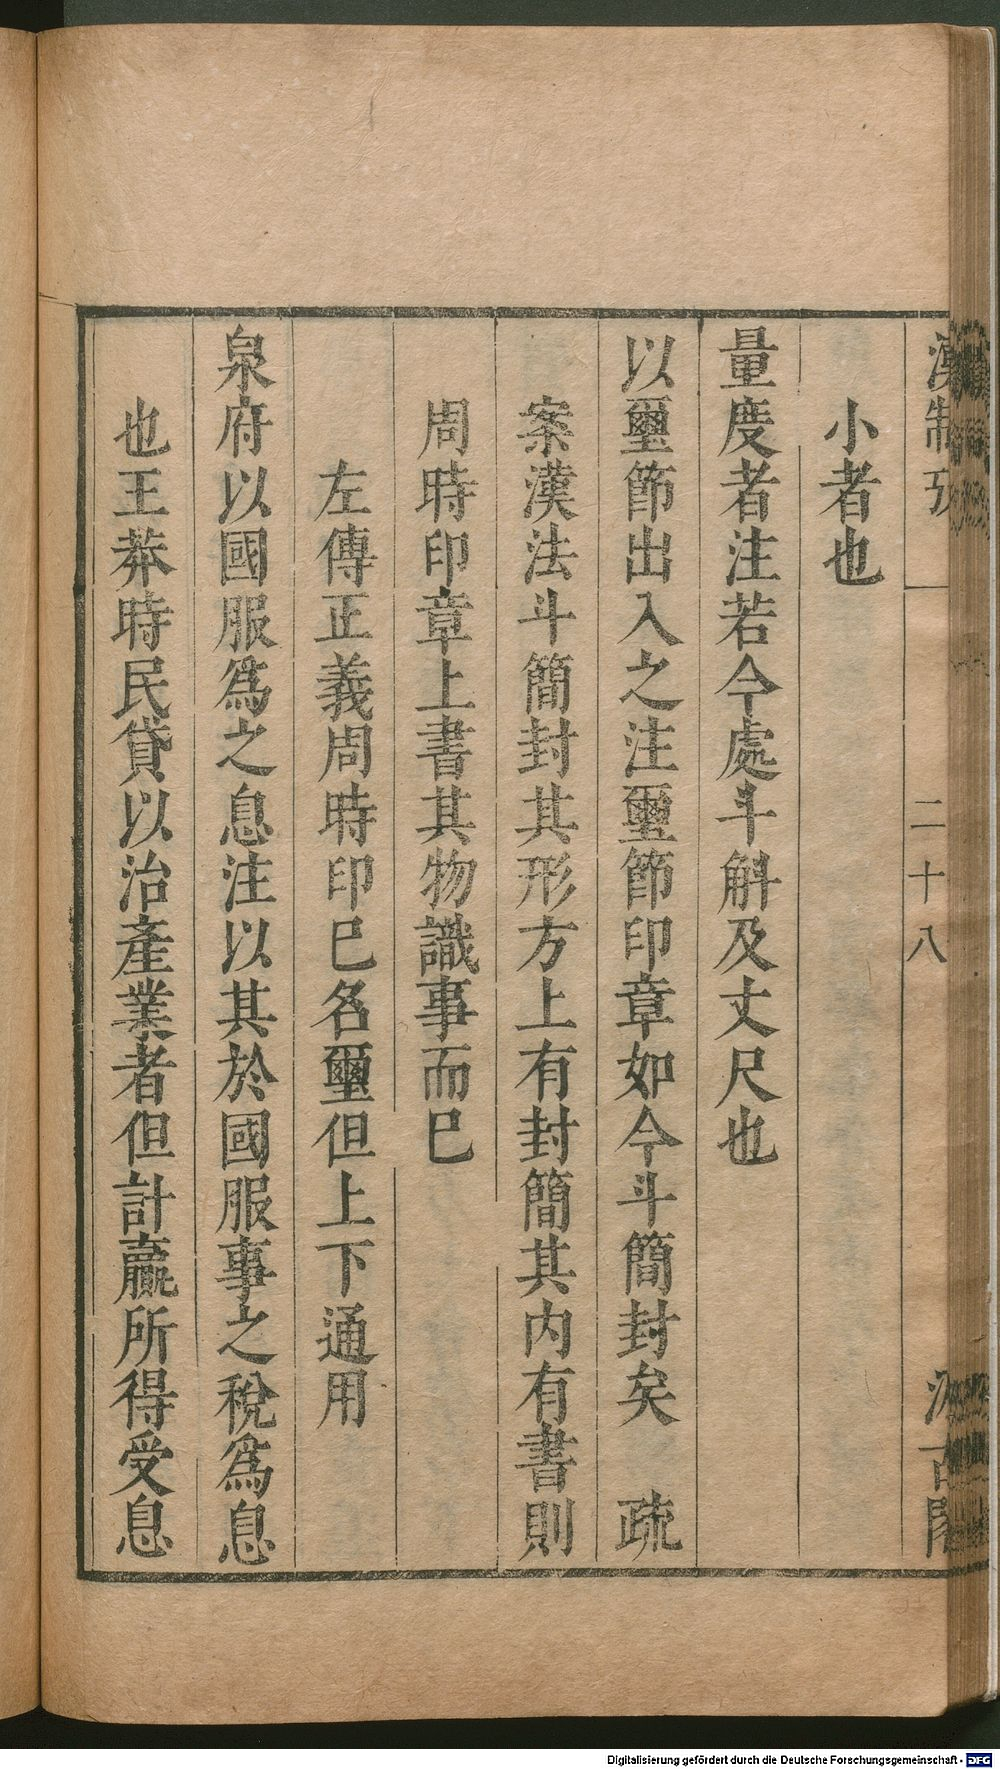 漢制攷
二十八
汲古閣
小者也
量度者注若今處斗斛及丈尺也
以璽節出入之注璽節印章如今斗簡封矣 疏
案漢法斗簡封其形方上有封簡其内有書則
周時印章上書其物識事而已
左傳正義周時印已名璽但上下通用
泉府以國服爲之息注以其於國服事之稅爲息
也王莽時民貸以治產業者但計贏所得受息
Digitalisierung gefördert durch die Deutsche Forschungsgemeinschaft - DFG